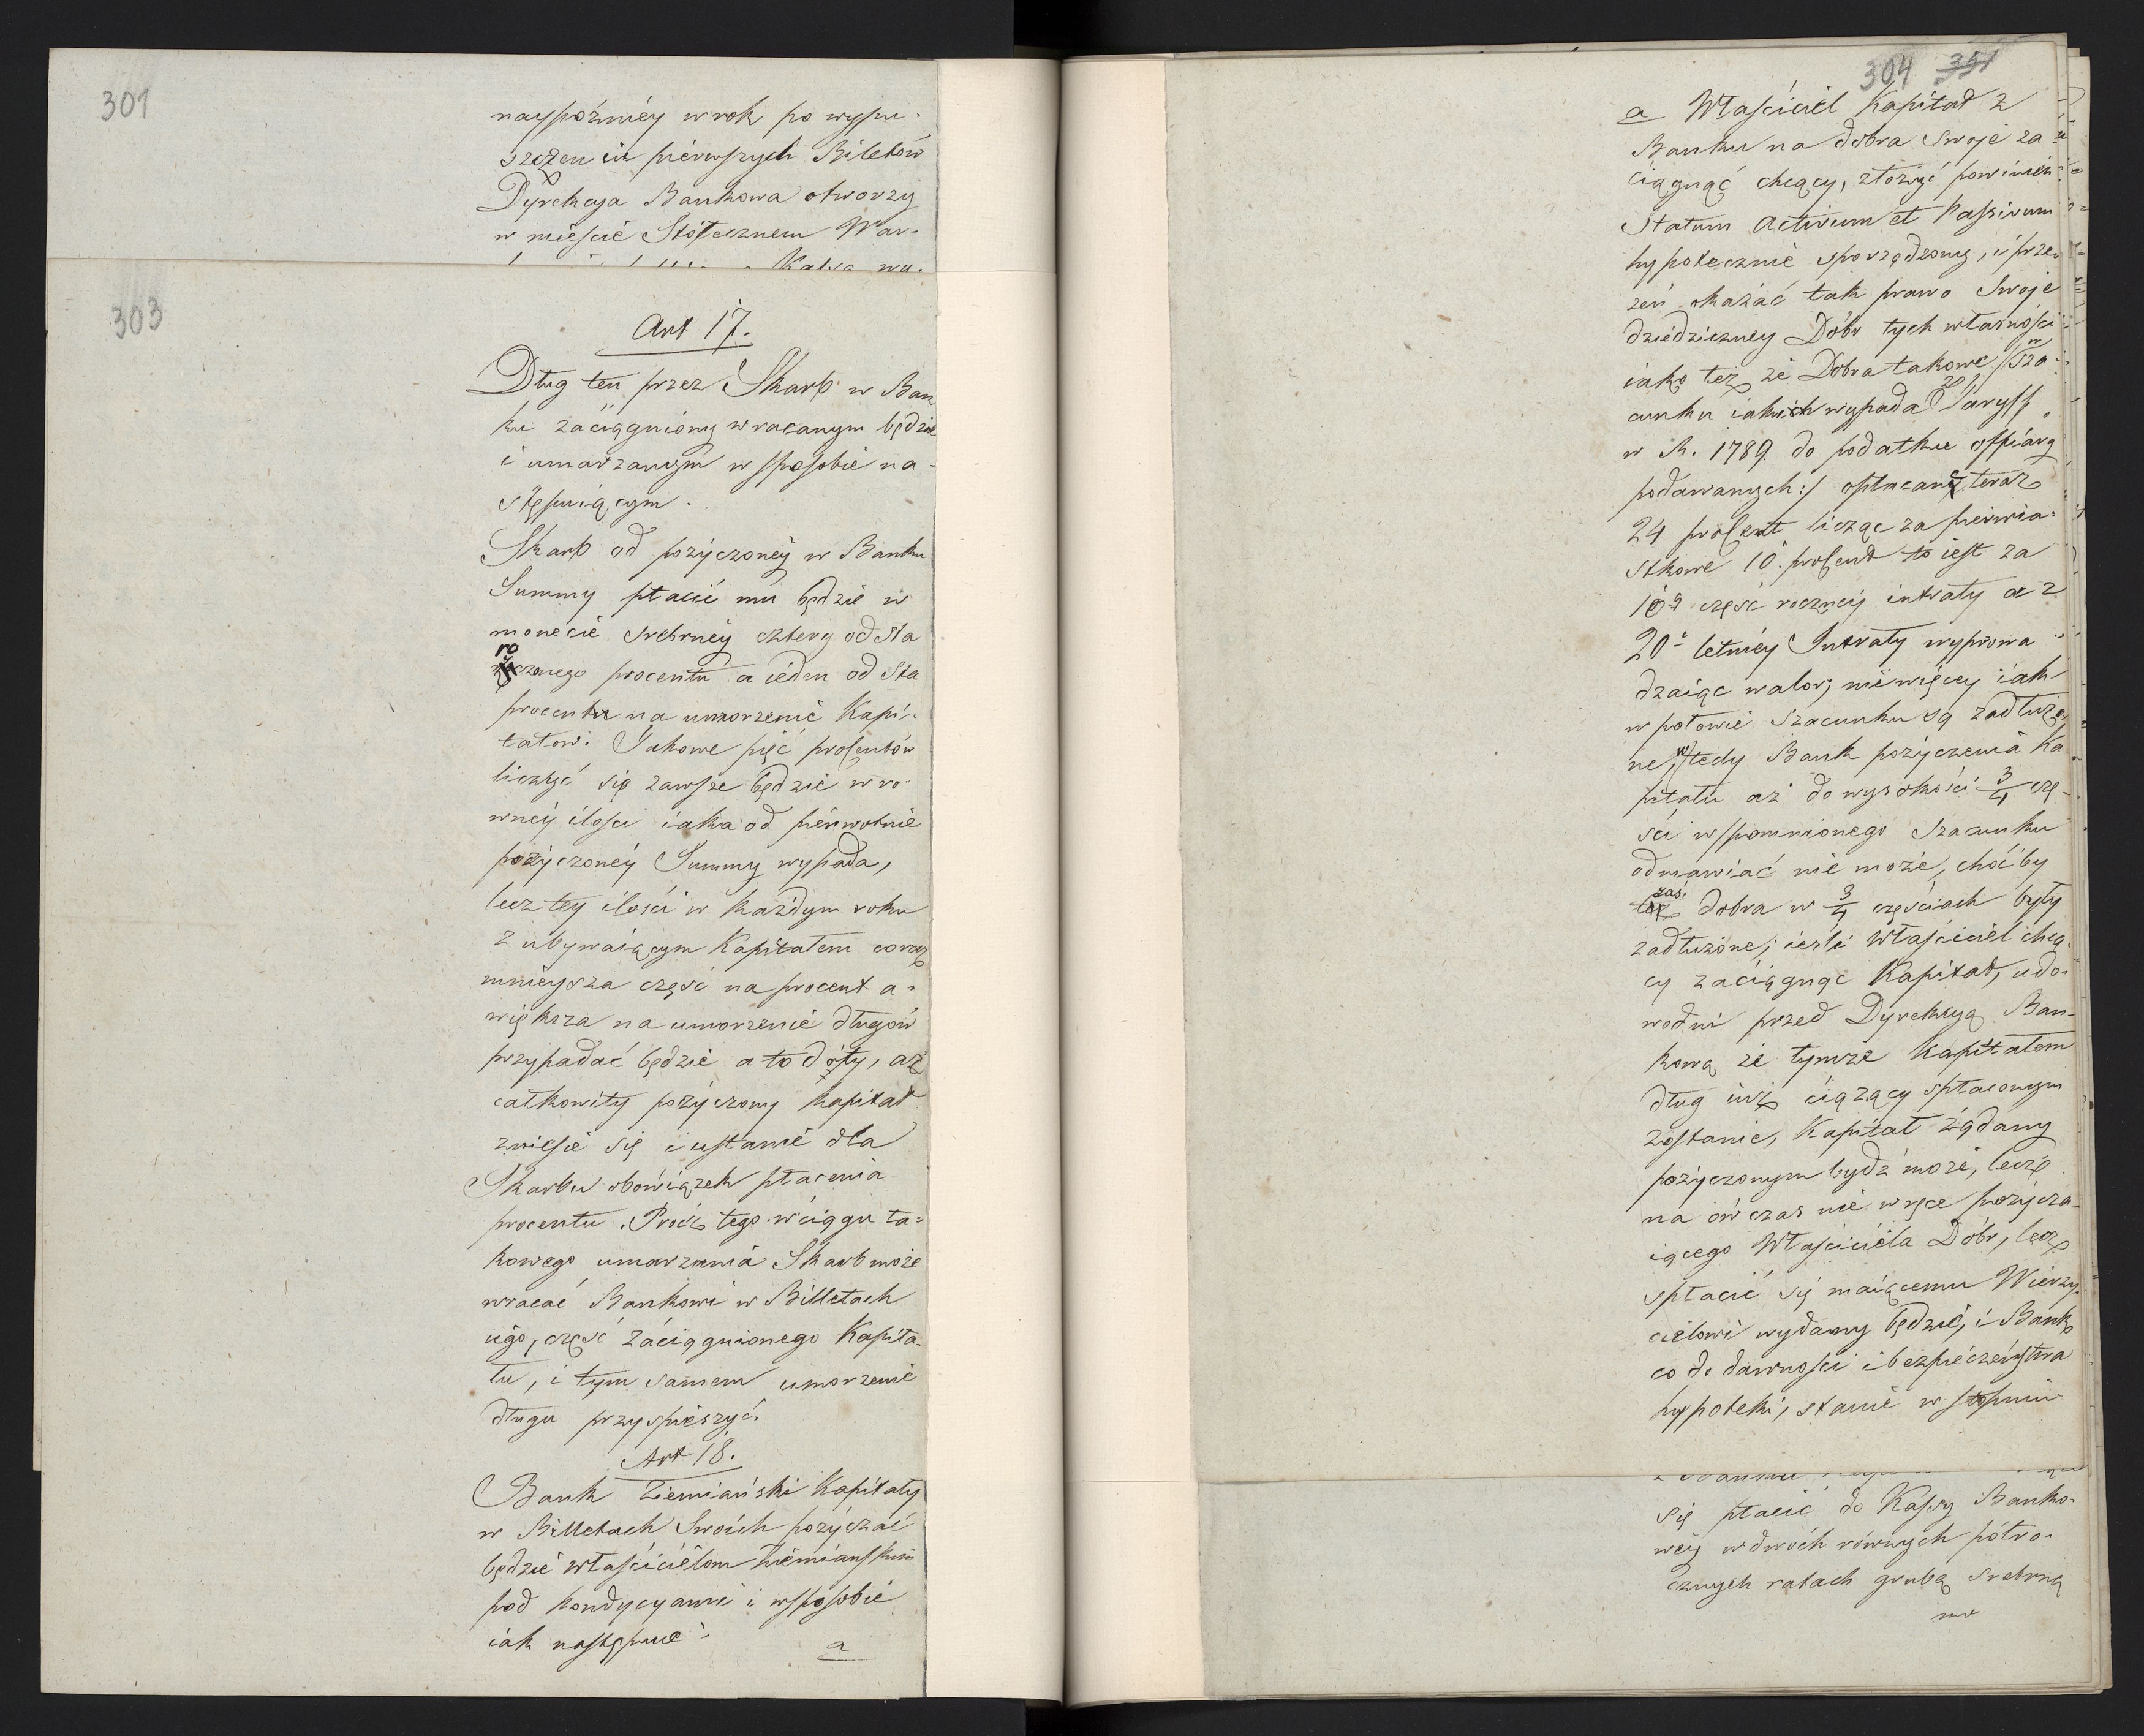 301
naypóźniéy w rok po wypu-
szczeniu pierwszych Biletów
Dyrekcya Bankowa otworzy
w mieście Stołecznem War-
303
Art 17.
Dług ten przez Skarb w Ban
ku zaciągniony wracanym będzie
i umarzanym w sposobie na-
stępuiącym.
Skarb od pożyczoney w Banku
Summy płacić mu będzie w
monecie srebrney cztery od sta
rocznego procentu a ieden od sta
procentu na umorzenie Kapi-
tałow. Takowe pięć procentów
liczyć się zawsze będzie w ro-
wney ilości iaka od pierwotnie
pożyczoney Summy wypada,
lecz tey ilości w każdym roku
z ubywaiącym Kapitałem coraz
mnieysza część na procent a
większa na umorzenie długów
przypadać będzie a to dóty, aż
całkowity pożyczony Kapitał
zniesie się i ustanie dla
Skarbu obowiązek płacenia
procentu. Prócz tego w ciągu ta-
kowego umarzania Skarb może
wracać Bankowi w Billetach
iego, część zaciągnionego Kapita-
łu, i tym samem umorzenie
długu przyspieszyć.
Art 18.
Bank Ziemiański Kapitały
w Billetach Swoich pożyczać
będzie właścicielom Ziemiańskim
pod kondycyami i w sposobie
iak następuie:
a
304 351
a Właściciel Kapitał z
Banku na dobra swoje za
ciągnąć chcący, złożyć powinien
Statum activum et Passivum
hypotecznie sporządzony, i przez
zeń okazać tak prawo Swoje
dziedziczney Dóbr tych własności
iako też że Dobra takowe /:w Sza-
cunku iaki wypada z Taryff
w R. 1789. do podatku offiary
podawanych:/ opłacane teraz
24 procent licząc za pierwia-
stkowe 10. procent to iest za
10ą część roczney intraty a z
20o letniey Intraty wyprowa
dzaiąc walor; nie więcey iak
w połowie szacunku są zadłużo
ne, wtedy Bank pożyczenia Ka
pitału aż do wysokości 3/4 czę-
ści wspomnionego Szacunku
odmawiać nie może, choćby
zaś dobra w 3/4 częściach były
zadłużone; ieżli Właściciel chcą-
cy zaciągnąc Kapitał, udo-
wodni przed Dyrekcyą Ban-
kową że tymże Kapitałem
dług iuż ciążący spłaconym
zostanie, Kapitał żądany
pożyczonym bydź może, lecz
na ówczas nie w ręce pożycza-
iącego Właściciela Dóbr, lecz
spłacić się maiącemu Wierzy-
cielowi wydany będzie, i Bank
co do dawności i bezpieczeństwa
hypoteki, stanie w stopniu
się płacić do Kassy Banko-
wey w dwóch równych półro-
cznych ratach grubą srebrną
mo